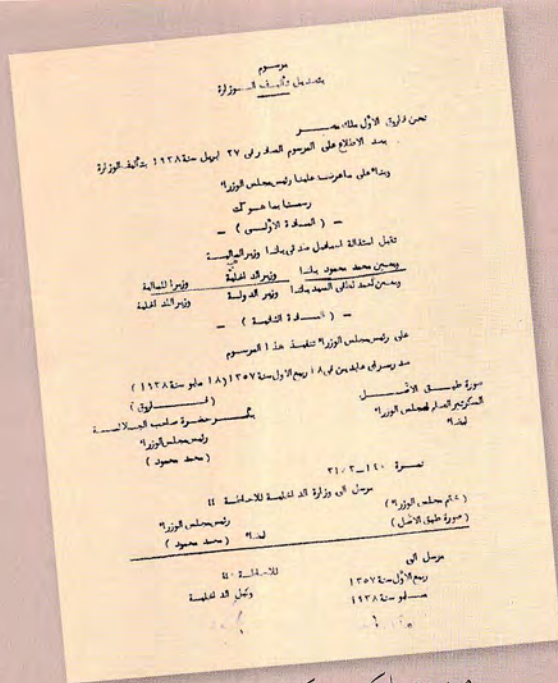 مرسوم
بتعديل تأليف الوزارة
نحن فاروق الأول ملك مصر
بعد الاطلاع على المرسوم الصادر فى ٢٧ ابريل سنة ١٩٣٨ بتأليف الوزارة
وبناء على ما عرضه علينا رئيس مجلس الوزراء
رسمنا بما هو آت
– ( المادة الأولى ) –
تقبل استقالة اسماعيل صدقى باشا وزير المالية
ويعين محمد محمود باشا وزير الداخلية وزيرا للمالية
ويعين أحمد لطفى السيد باشا وزير الدولة وزير الداخلية
– ( المادة الثانية ) –
على رئيس مجلس الوزراء تنفيذ هذا المرسوم
صدر بسراى عابدين فى ١٨ ربيع الاول سنة ١٣٥٧ ( ١٨ مايو سنة ١٩٣٨ )
( فاروق )
صورة طبق الأصل بأمر حضرة صاحب الجلالة
السكرتير العام لمجلس الوزراء رئيس مجلس الوزراء
امضاء ( محمد محمود )
نمرة ١٤٠–٣/٢١
مرسل الى وزارة الداخلية للاحاطة ،،
( ختم مجلس الوزراء ) رئيس مجلس الوزراء
( صورة طبق الأصل ) امضاء ( محمد محمود )
مرسل الى للاحاطة ،،
ربيع الأول سنة ١٣٥٧ وكيل الداخلية
مايو سنة ١٩٣٨